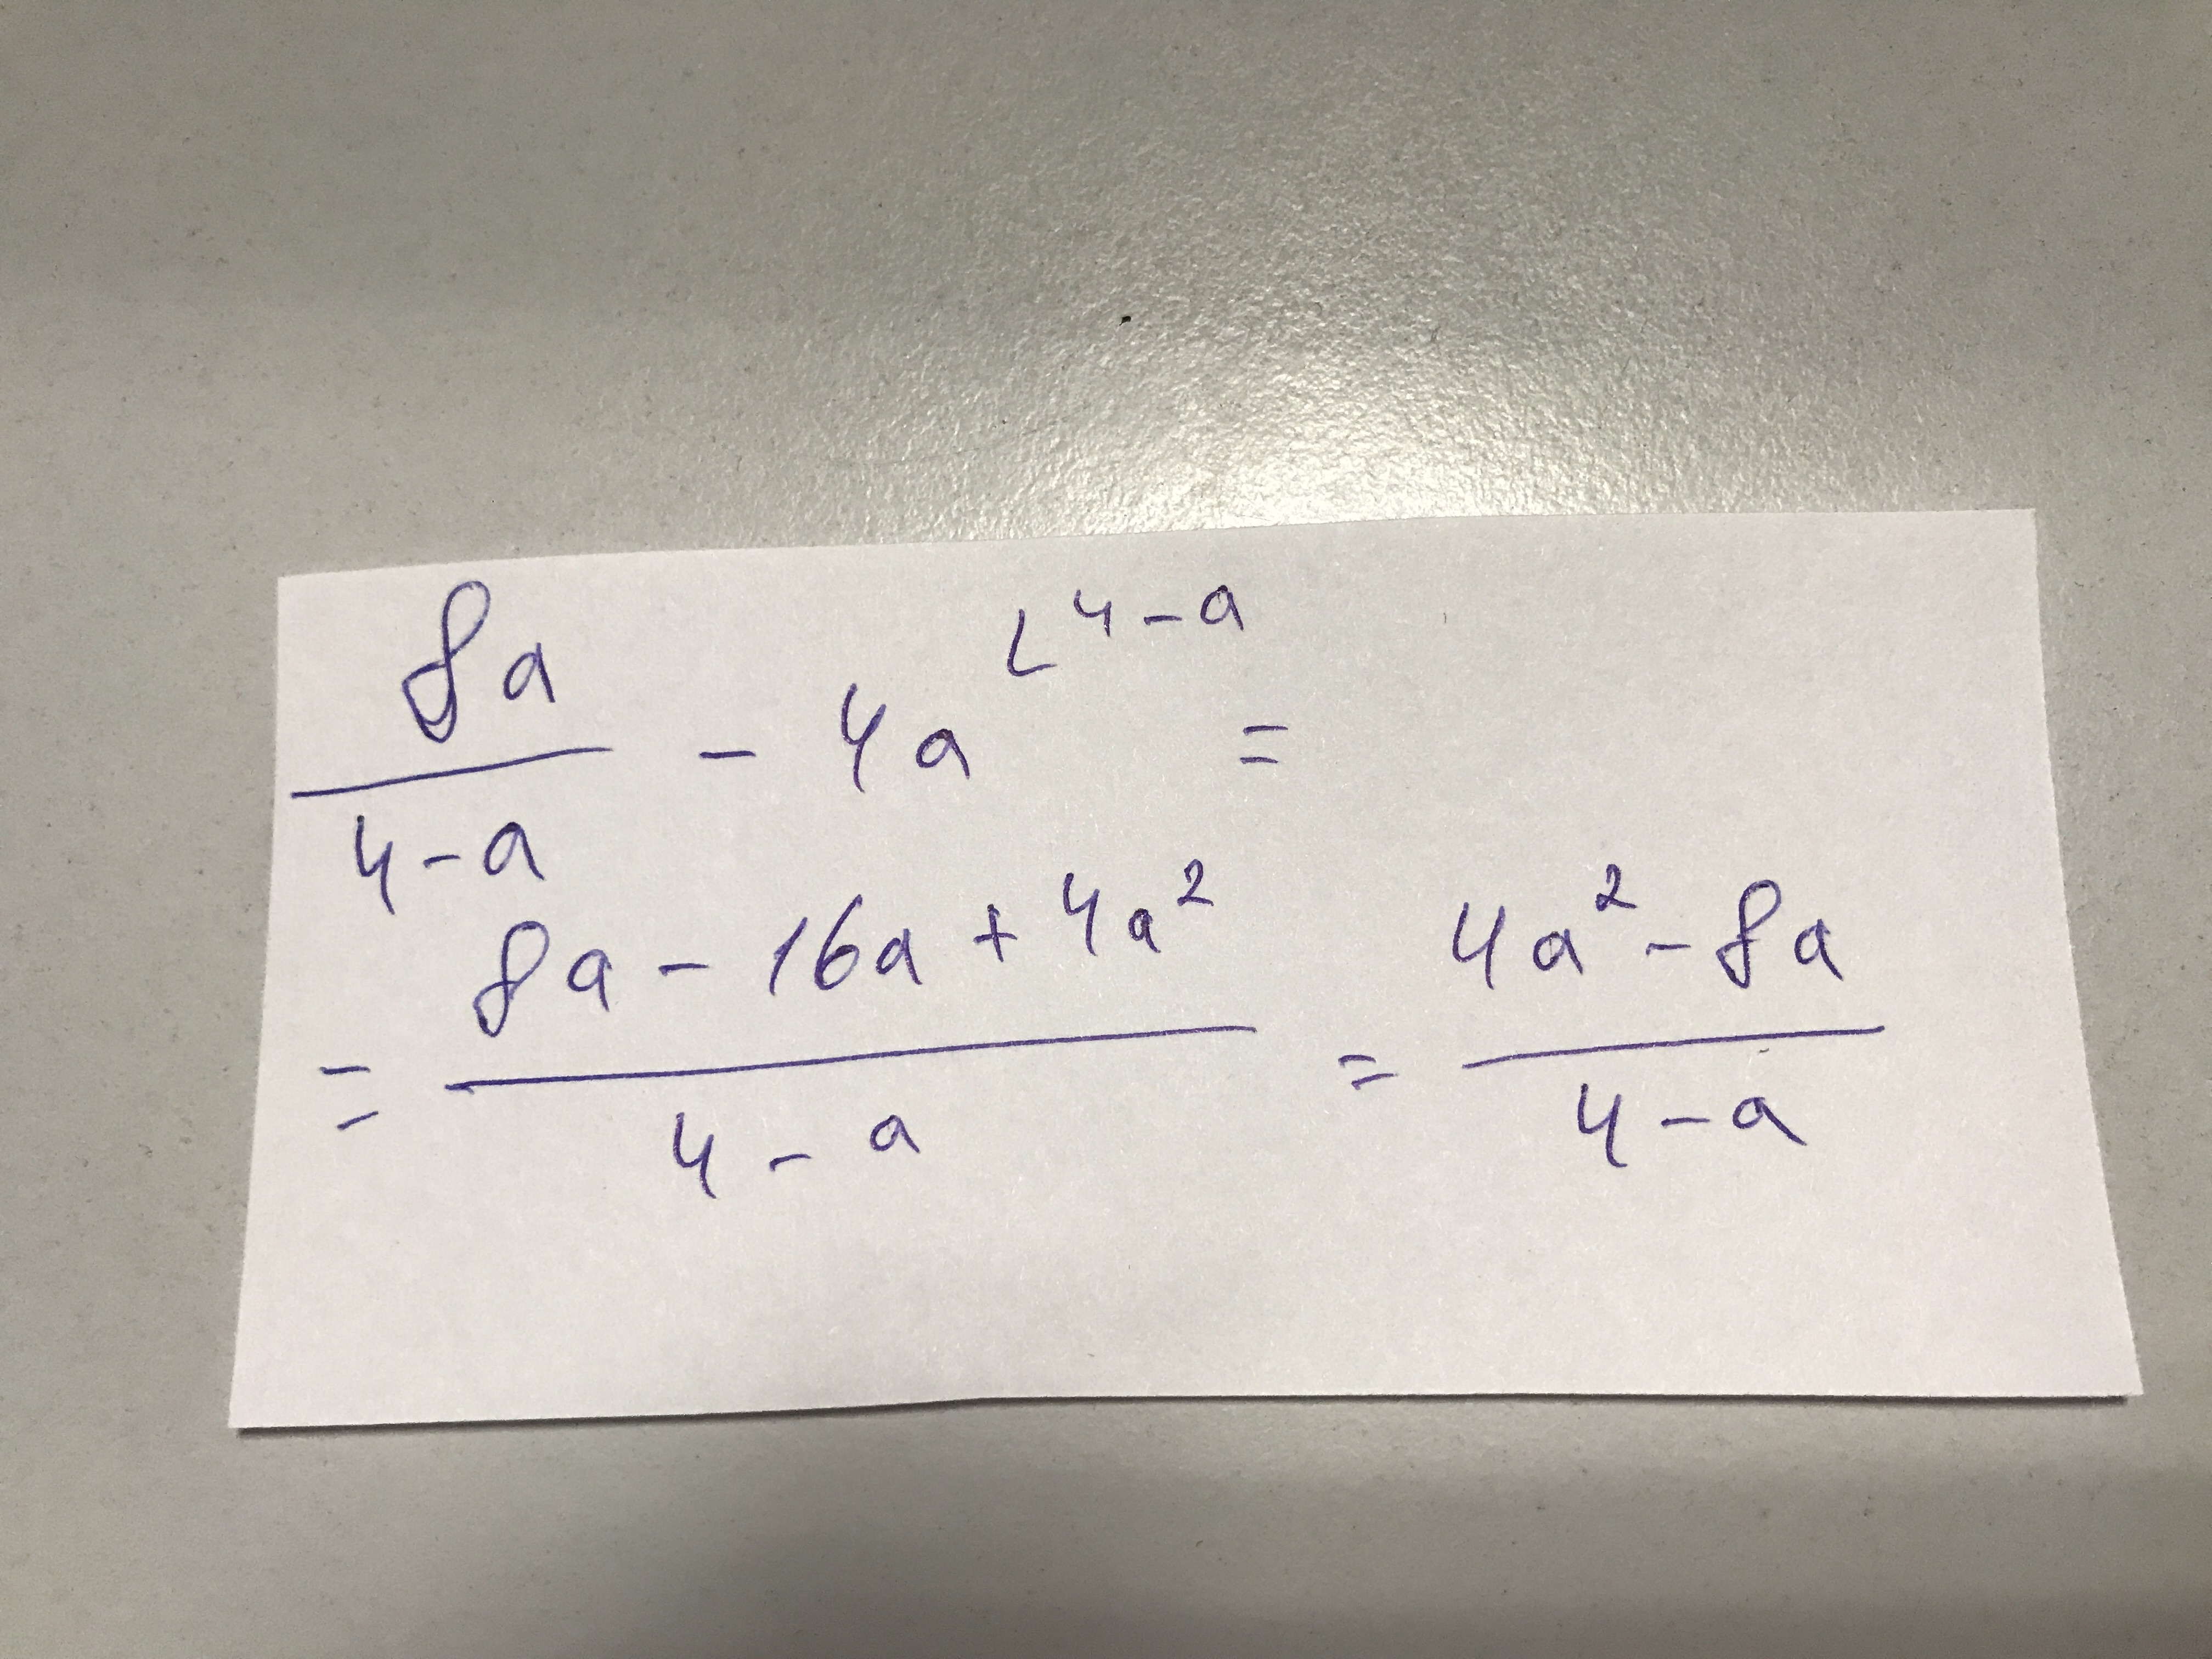 8a/(4-a) - 4a ⌊4-a =
= (8a - 16a + 4a²)/(4 - a) = (4a² - 8a)/(4 - a)